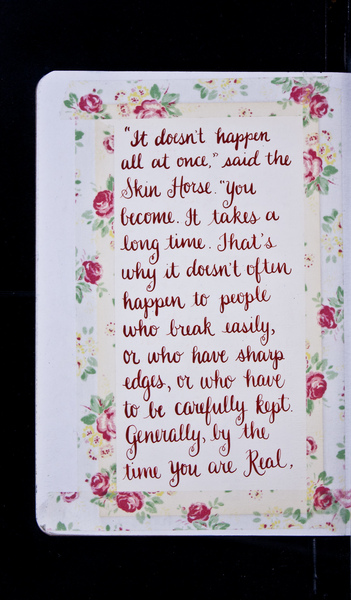 "It doesn't happen
all at once," said the
Skin Horse. "You
become. It takes a
long time. That's
why it doesn't often
happen to people
who break easily,
or who have sharp
edges, or who have
to be carefully kept.
Generally, by the
time you are Real,